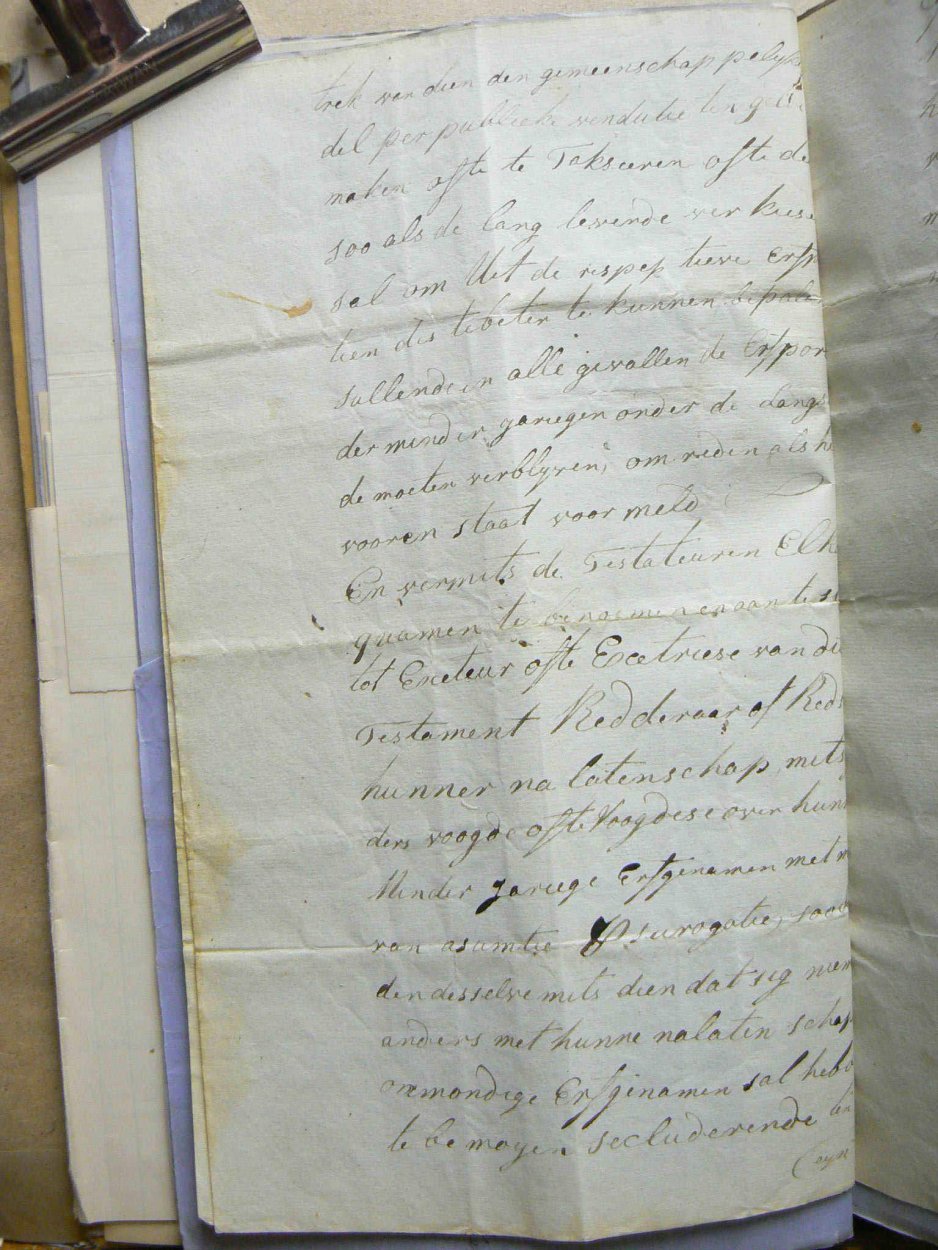 trek van dien den gemeenschappelyk
del per publieke vendutie ten gel
maken ofte te Takseeren ofte de
soo als de lang levende ver kiese
sal om Uet de respep tieve Erfp
tien des te beter te kunnen bepale
sullende in alle gevallen de Erfpor
der minder jariegen onder de Langs
de moeten verblyven, om reden als h
vooren staat voor meld
En vermits de Testateuren Elk
quamen te benoemen en aan te s
tot Exeteur ofte Excetriese van di
Testament Redderaar of Reds
hunner na latenschap mits
ders voogde ofte Voogdese over hun
Minder jariege Erfgenamen met m
van asumtie & surogatie, soo
den desselve mits dien dat sig niem
anders met hunne nalaten schap
onmondige Erfgenamen sal hebb
te be moyen secluderende ten
(eyn